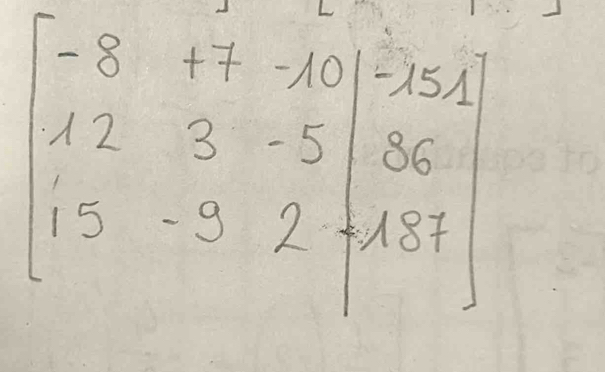 -8 +7 -10 | -151
12 3 -5 | 86
15 -9 2 | 187